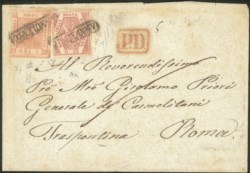 PD
Al Reverendissimo
Pré Mro Girolamo Priori
Generale de' Carmelitani
Traspontina Roma